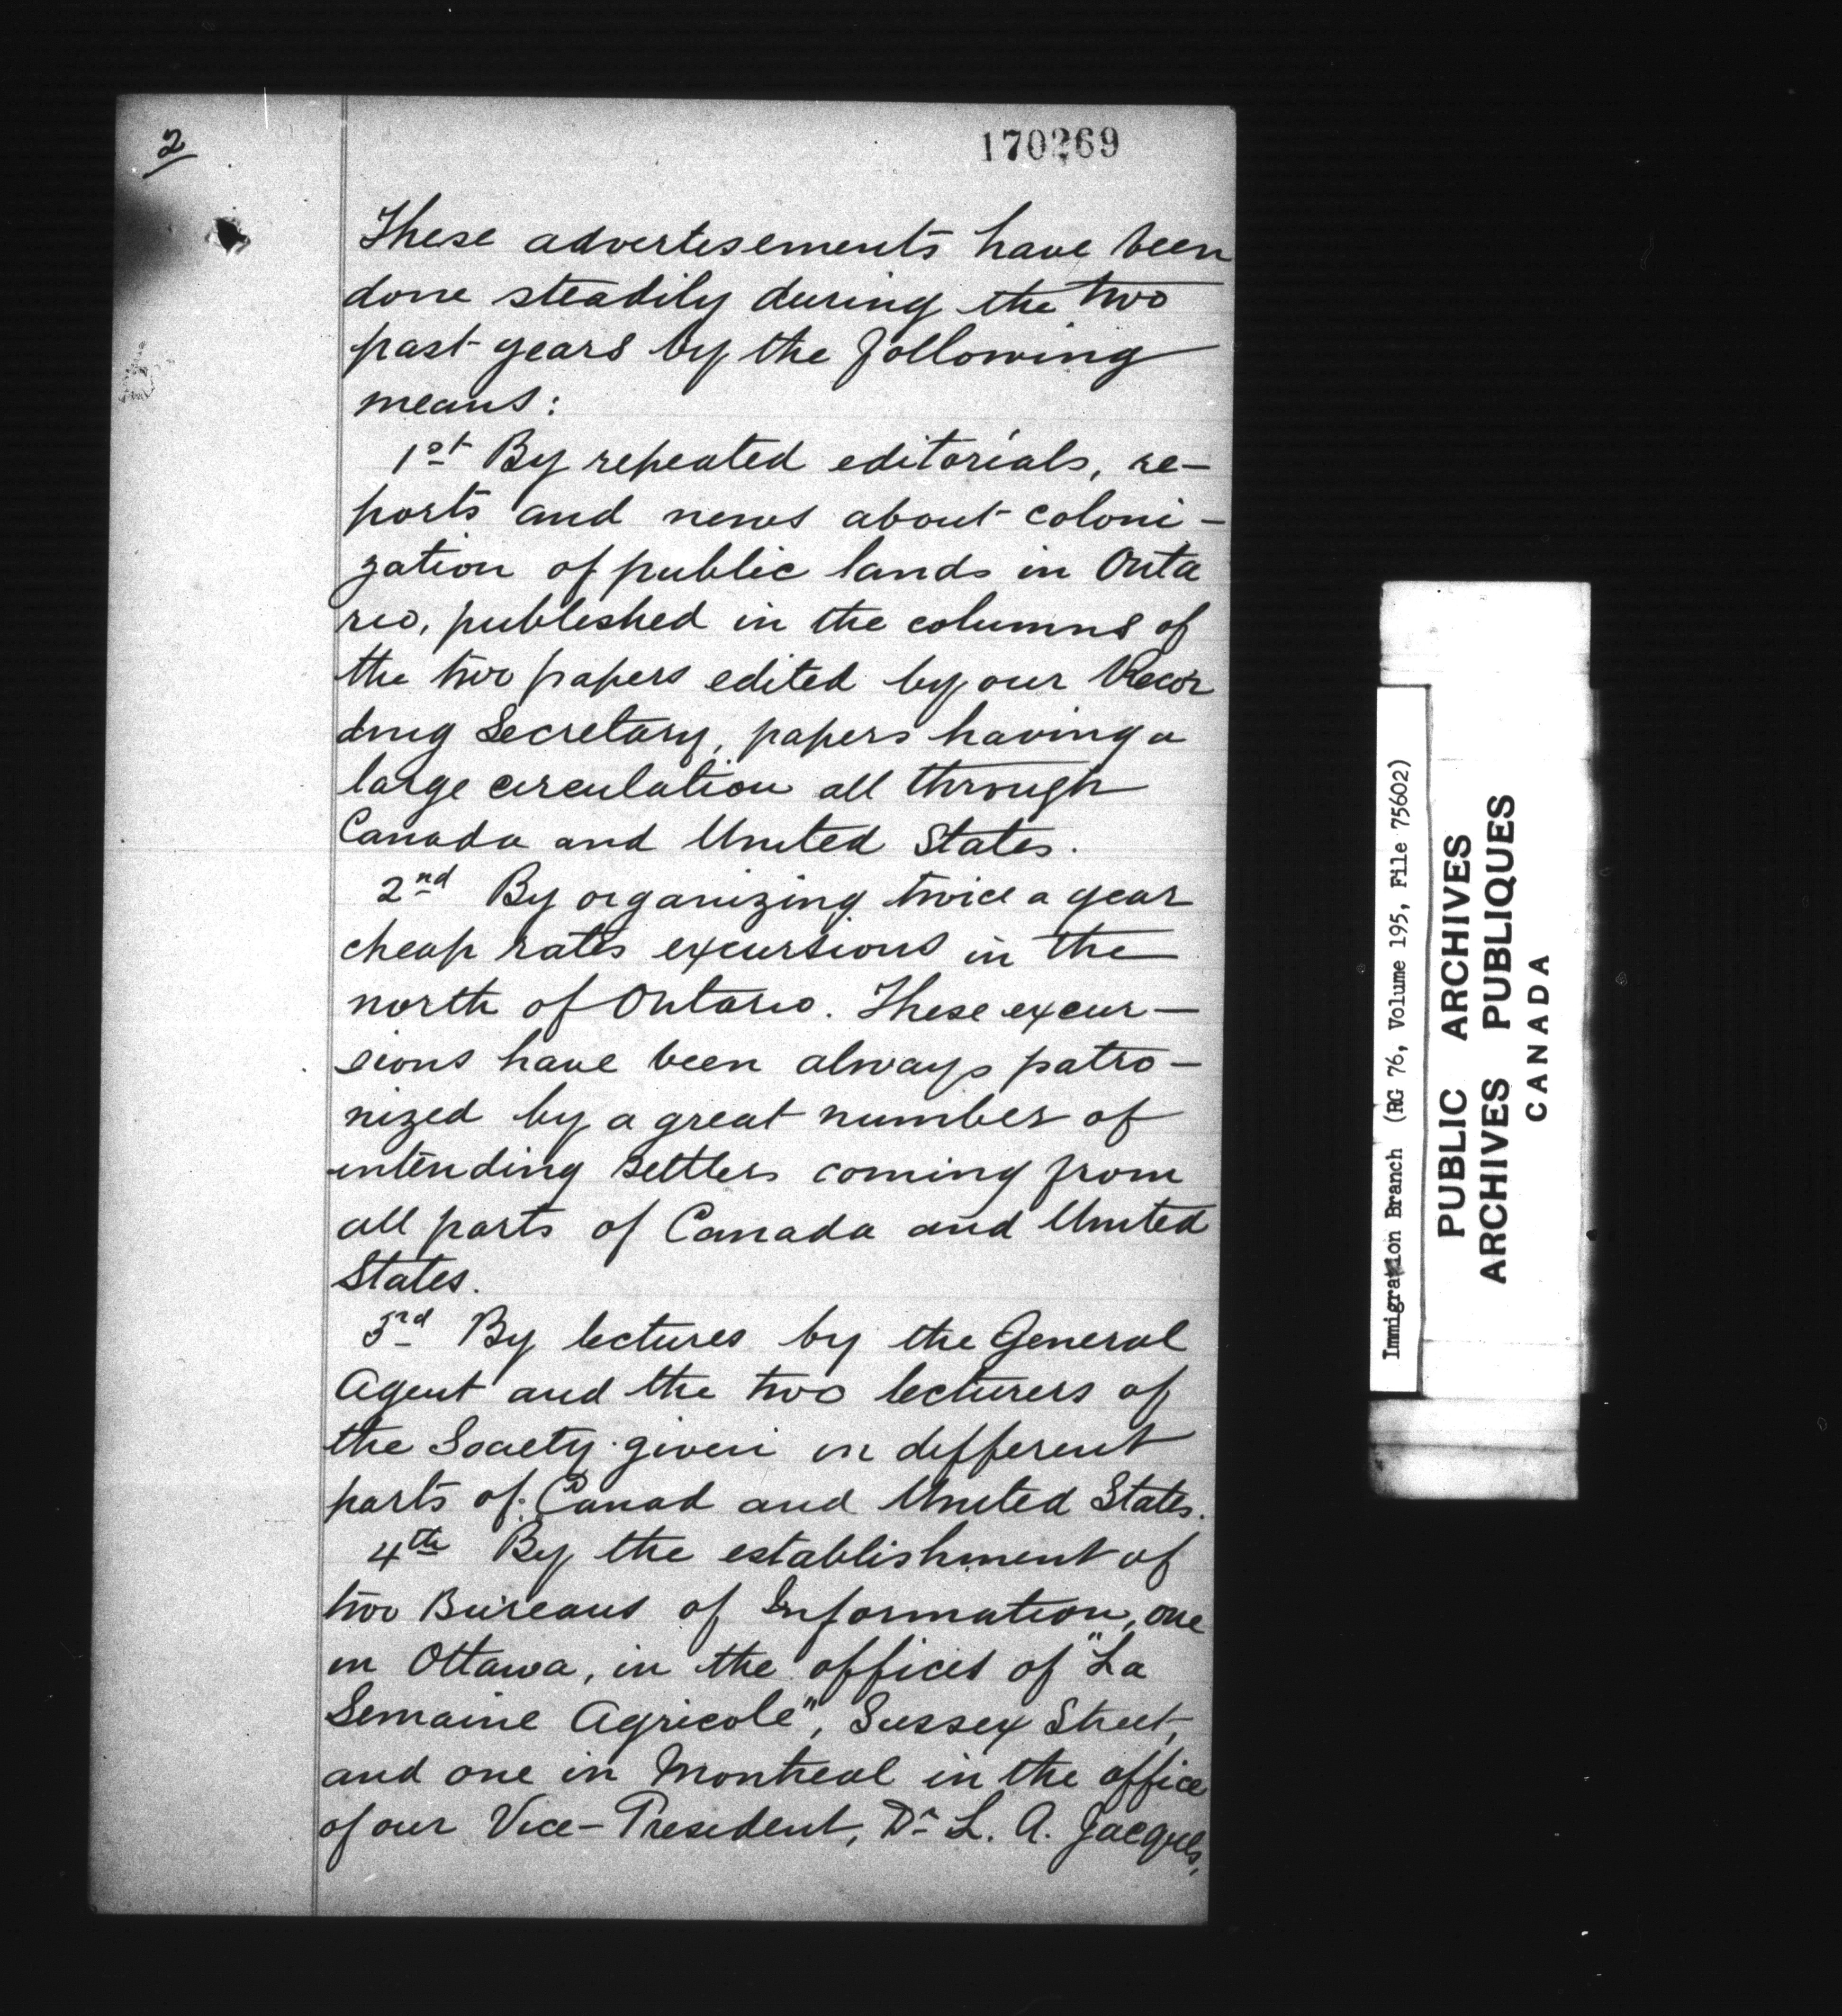 2
170269
These advertisements have been
done steadily during the two
past years by the following
means:
1st By repeated editorials, re-
ports and news about coloni-
zation of public lands in Onta
rio, published in the columns of
the two papers edited by our Recor
ding Secretary, papers having a
large circulation all through
Canada and United States.
2nd By organizing twice a year
cheap rates excursions in the
north of Ontario. These excur-
sions have been always patro-
nized by a great number of
intending settlers coming from
all parts of Canada and United
States.
3rd By lectures by the General
Agent and the two lecturers of
the Society given in different
parts of Canad and United States.
4th By the establishment of
two Bureaus of Information, one
in Ottawa, in the offices of "La
Semaine Agricole", Sussex Street,
and one in Montreal in the office
of our Vice-President, Dr L. A. Jacques,
Immigration Branch (RG 76, Volume 195, File 75602)
PUBLIC ARCHIVES
ARCHIVES PUBLIQUES
CANADA